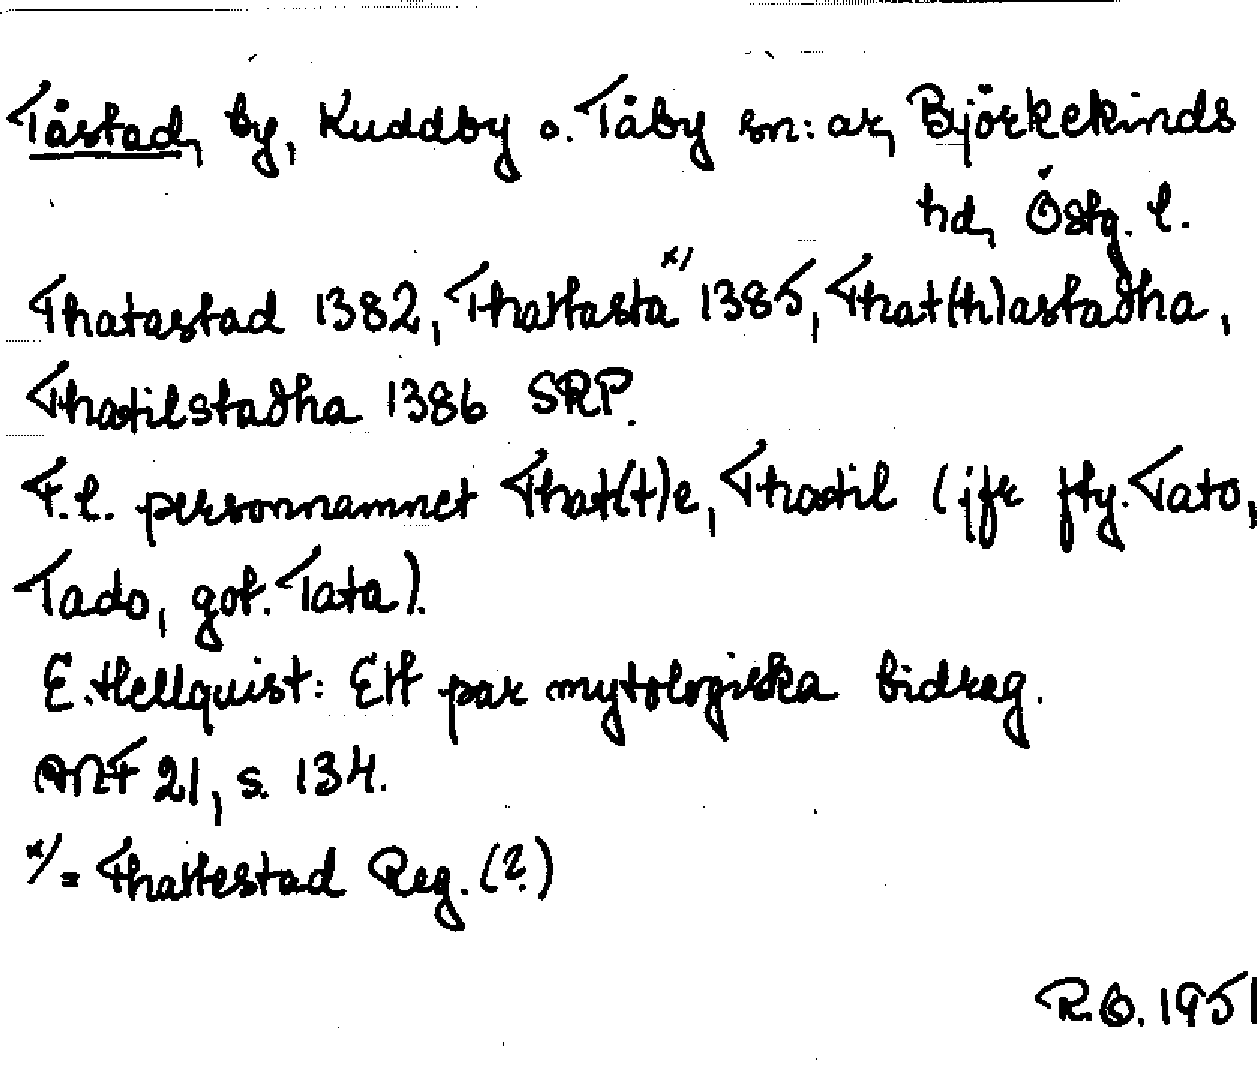 Tåstad, by, Kuddby o. Tåby sn:ar, Björkekinds
hd, Östg. l.
Thatastad 1382, Thattasta x/ 1385, That(h)astadha,
Thatilstadha 1386 SRP.
F.l. personnamnet That(t)e, Thatil (jfr fhy. Tato,
Tado, got. Tata).
E. Hellquist: Ett par mytologiska bidrag.
ANF 21, s. 134.
x/ = Thattestad Reg. (?)
R.O. 1951